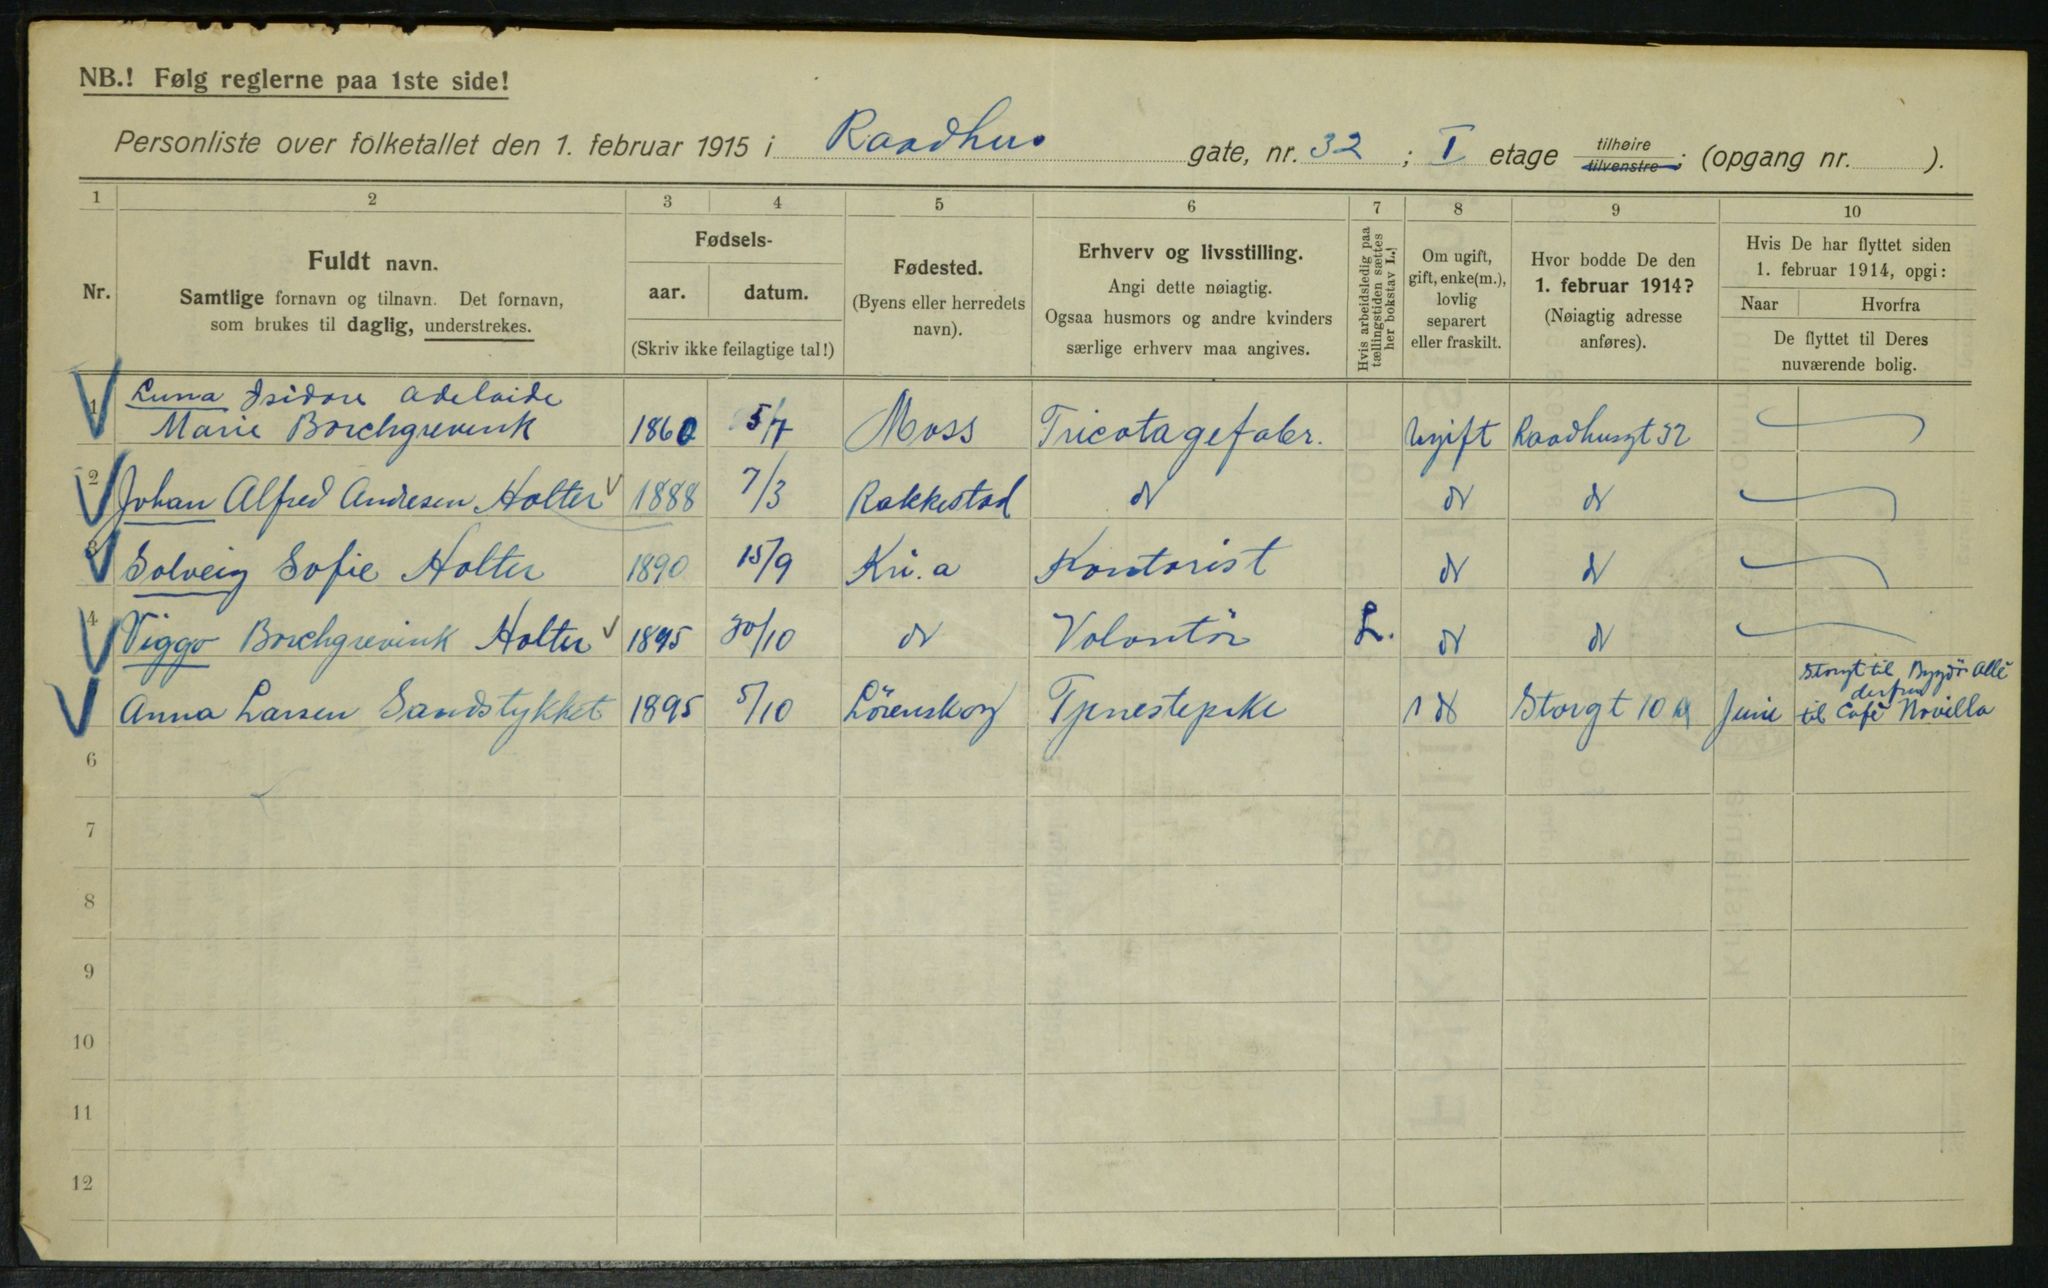 NB.! Følg reglerne paa 1ste side!
Personliste over folketallet den 1. februar 1915 i Raadhus gate, nr. 32 ; I etage tilhøire tilvenstre ; (opgang nr. ).
1 2 3 4 5 6 7 8 9 10
Nr.
Fuldt navn.
Samtlige fornavn og tilnavn. Det fornavn,
som brukes til daglig, understrekes.
Fødsels-
aar. datum.
(Skriv ikke feilagtige tal!)
Fødested.
(Byens eller herredets
navn).
Erhverv og livsstilling.
Angi dette nøiagtig.
Ogsaa husmors og andre kvinders
særlige erhverv maa angives.
Hvis arbeidsledig paa
tællingstiden sættes
her bokstav L.
Om ugift,
gift, enke(m.),
lovlig
separert
eller fraskilt.
Hvor bodde De den
1. februar 1914?
(Nøiagtig adresse
anføres).
Hvis De har flyttet siden
1. februar 1914, opgi:
Naar Hvorfra
De flyttet til Deres
nuværende bolig.
Luna Isidore Adelaide
1 Marie Borchgrevink 1860 5/7 Moss Tricotagefabr. Ugift Raadhusgt 32
2 Johan Alfred Andresen Holter 1888 7/3 Rakkestad do do do
3 Solveig Sofie Holter 1890 15/9 Kri.a Kontorist do do
4 Viggo Borchgrevink Holter 1895 30/10 do Volontör L. do do
Anna Larsen Sandstykket 1895 5/10 Lörenskog Tjenestepike do Storgt 10 Juni Storgt til Bygdö Allé
derfra
til Café Novilla
6
7
8
9
10
11
12